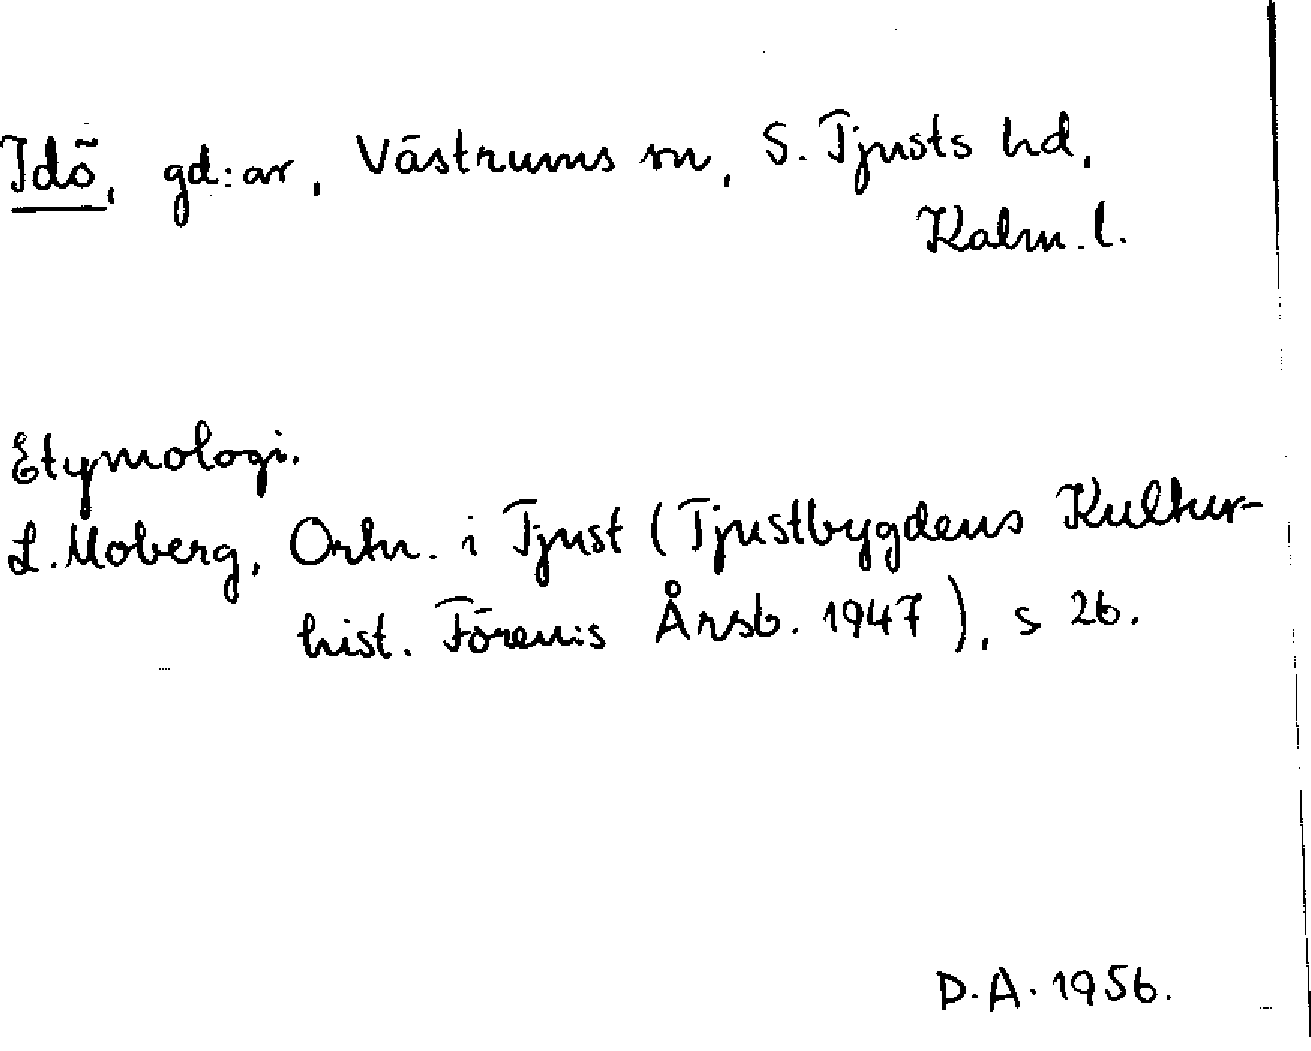 Idö, gd:ar, Västrums sn, S. Tjusts hd,
Kalm. l.
Etymologi.
L. Moberg, Ortn. i Tjust (Tjustbygdens Kultur-
hist. Fören:s Årsb. 1947), s 26.
D.A. 1956.